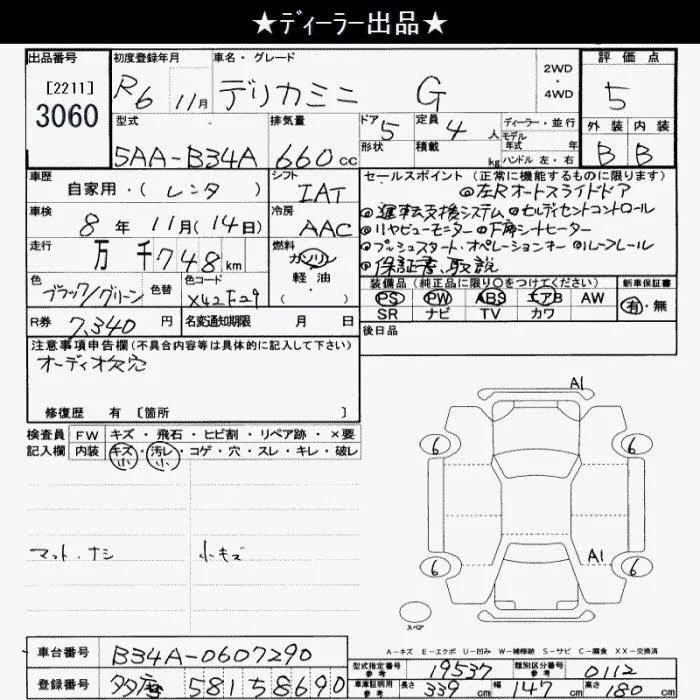 ★ディーラー出品★
出品番号
[2211]
3060
初度登録年月
R6 11月
車名・グレード
デリカミニ G
2WD
・
4WD
評価点
5
型式
5AA-B34A
排気量
660 cc
ドア
5
定員
4 人
形状
積載
kg
ディーラー・並行
モデル
年式 年
ハンドル 左・右
外装 内装
B B
車歴
自家用・( レンタ )
シフト
IAT
車検
8 年 11月(14日)
冷房
AAC
走行
万 千748 km
燃料
ガソリン
軽油
( ・ )
色
ブラック/グリーン
色替
色コード
X42 F29
R券
7,340 円
名変通知期限 月 日
セールスポイント (正常に機能するものに限ります)
◎左Rオートスライドドア
◎運転支援システム
◎リヤビューモニター ◎下席シートヒーター
◎プッシュスタート・オペレーションキー ◎ルーフレール
◎保証書、取説
装備品(純正品に限り○をつけてください)
PS PW ABS エアB AW
SR ナビ TV カワ
新車保証書
有・無
後日品
注意事項申告欄(不具合内容等は具体的に記入して下さい)
オーディオ欠穴
修復歴 有 [箇所 ]
検査員
記入欄
FW キズ・飛石・ヒビ割・リペア跡・×要
内装 キズ・汚レ・コゲ・穴・スレ・キレ・破レ
小 小
マット・ナシ
小キズ
A1
6
6
A1
6
6
スペア
A-キズ E-エクボ U-凹み W-補修跡 S-サビ C-腐食 XX-交換済
車台番号
B34A-0607290
登録番号
多摩 581 5 8690
型式指定番号
参考
19537
類別区分番号
参考
0112
車庫証明用
参考
長さ 339 cm 幅 147 cm 高さ 180 cm